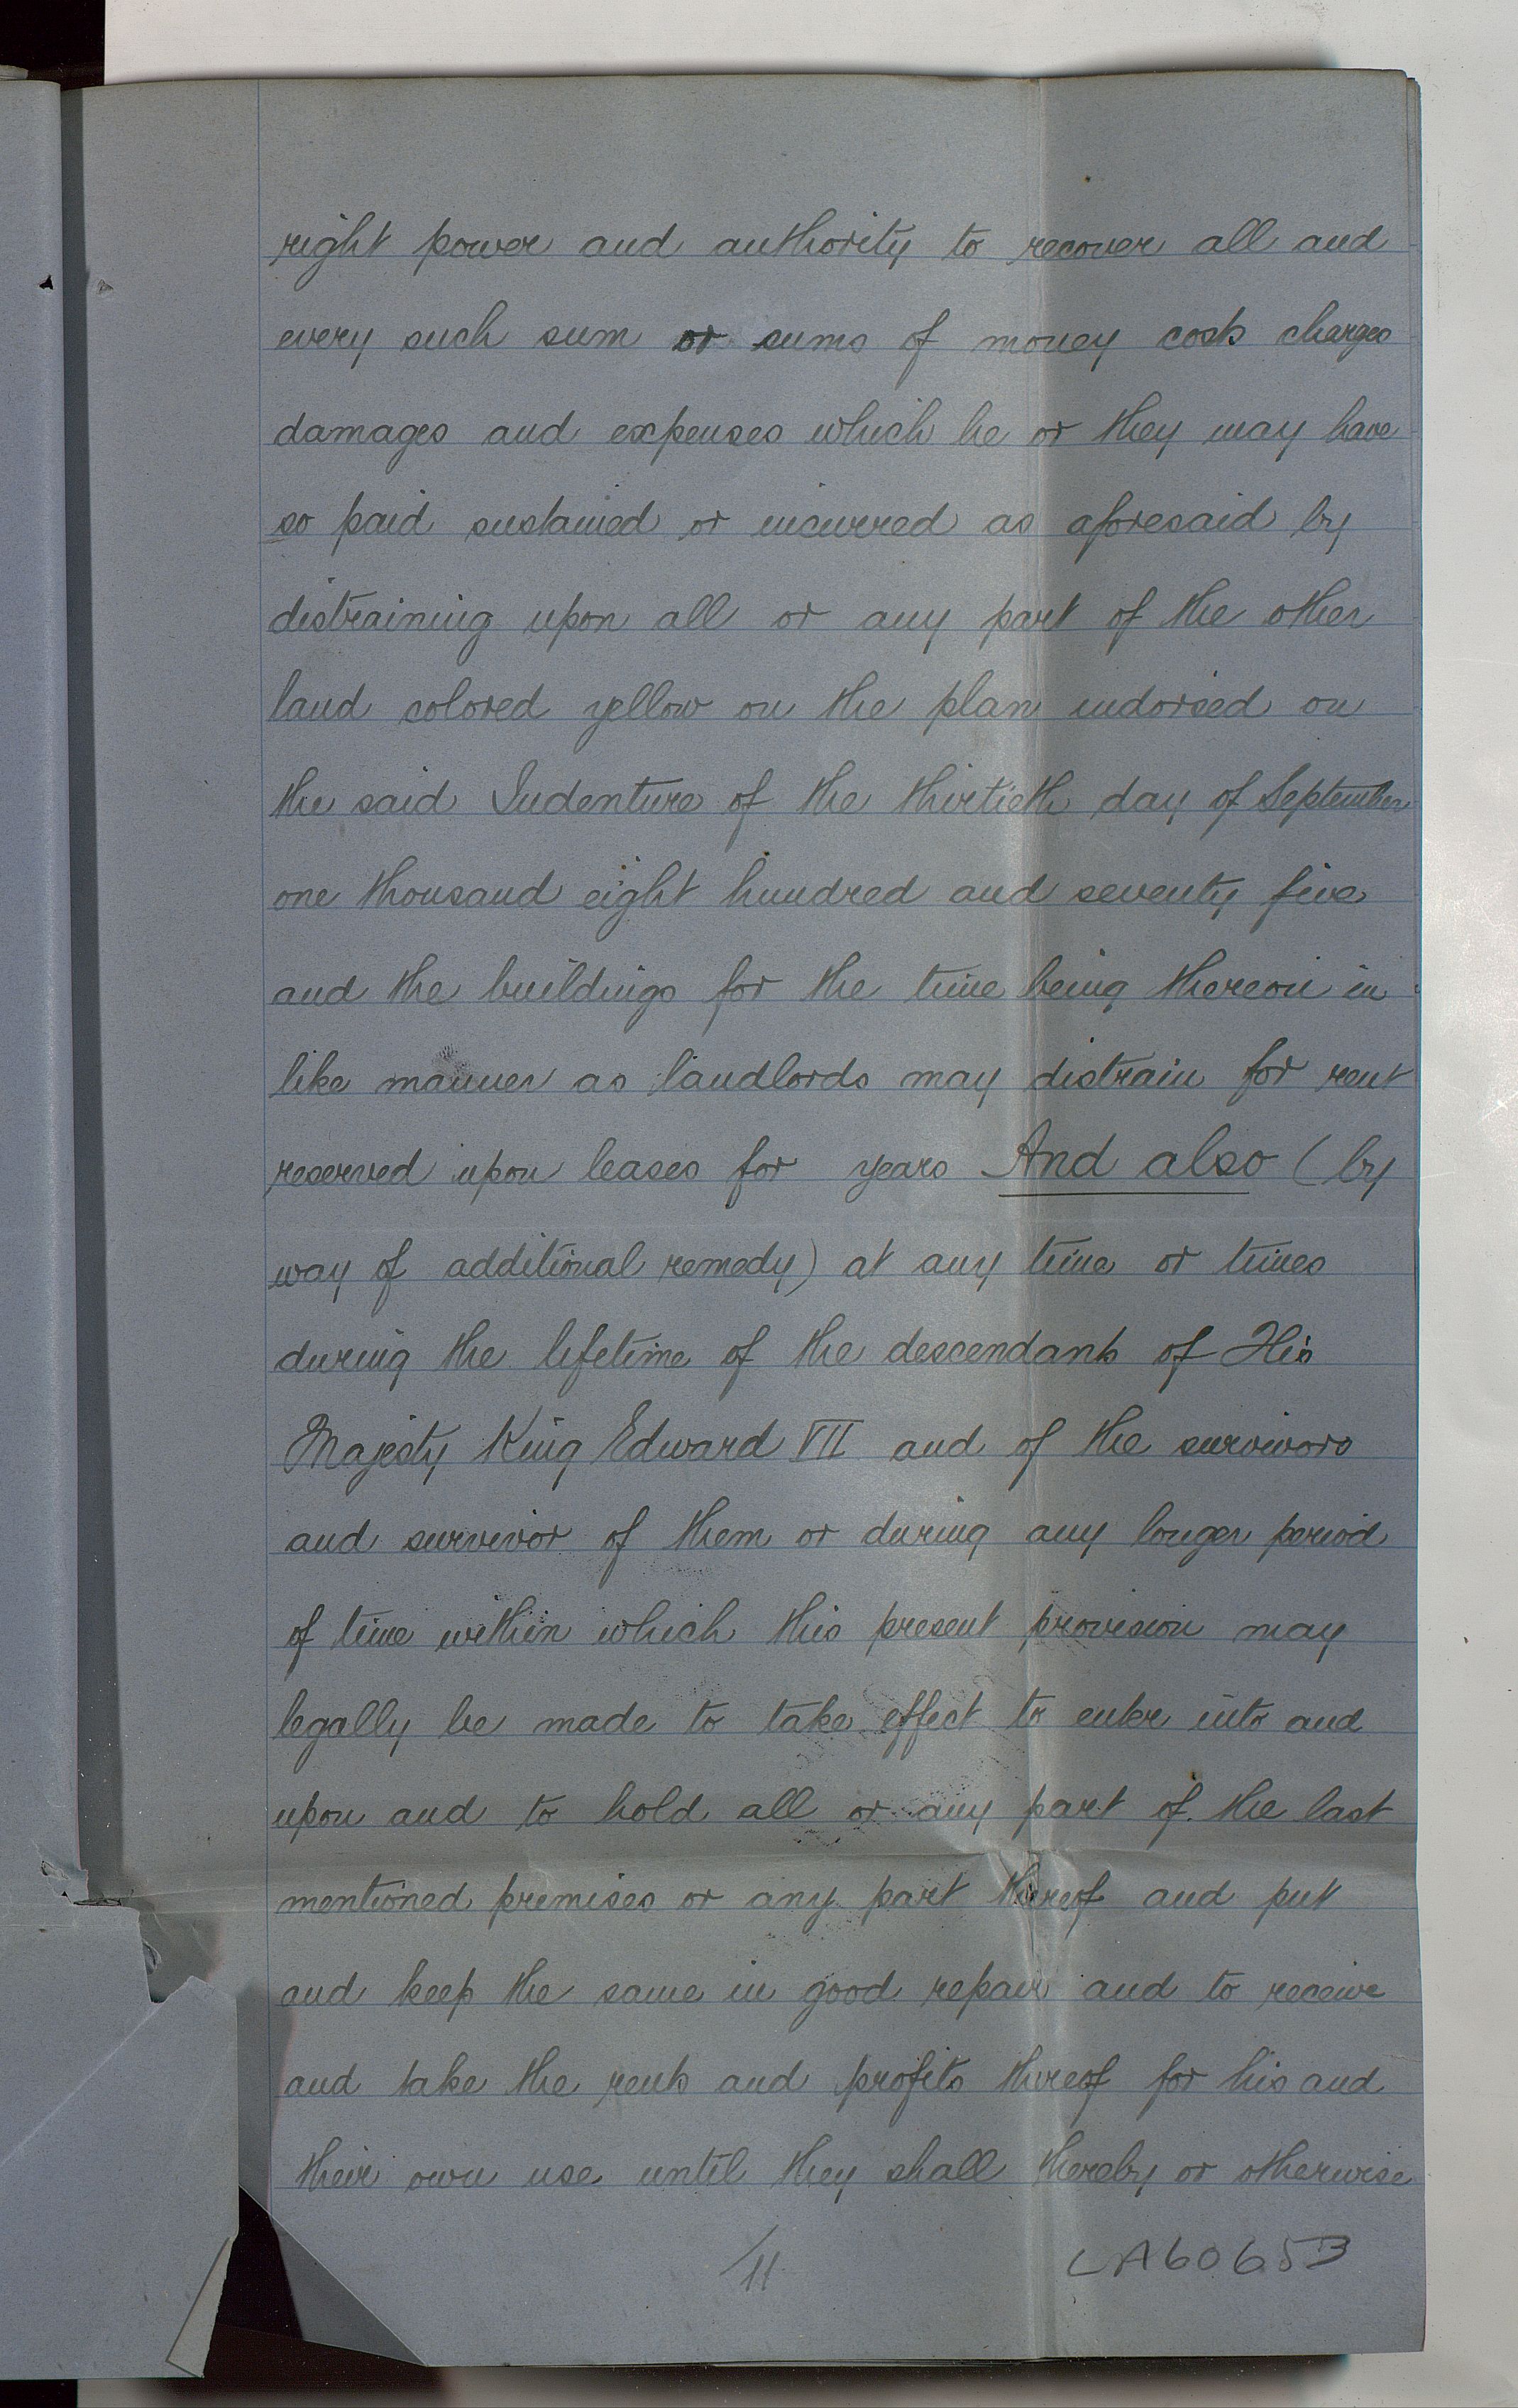 right power and authority to recover all and
every such sum or sums of money costs charges
damages and expenses which he or they may have
so paid sustained or incurred as aforesaid by
distraining upon all or any part of the other
land colored yellow on the plan indorsed on
the said Indenture of the thirtieth day of September
one thousand eight hundred and seventy five
and the buildings for the time being thereon in
like manner as landlords may distrain for rent
reserved upon leases for years And also (by
way of additional remedy) at any time or times
during the lifetime of the descendants of His
Majesty King Edward VII and of the survivors
and survivor of them or during any longer period
of time within which this present provision may
legally be made to take effect to enter into and
upon and to hold all or any part of the last
mentioned premises or any part thereof and put
and keep the same in good repair and to receive
and take the rents and profits thereof for his and
their own use until they shall thereby or otherwise
11
LA60653